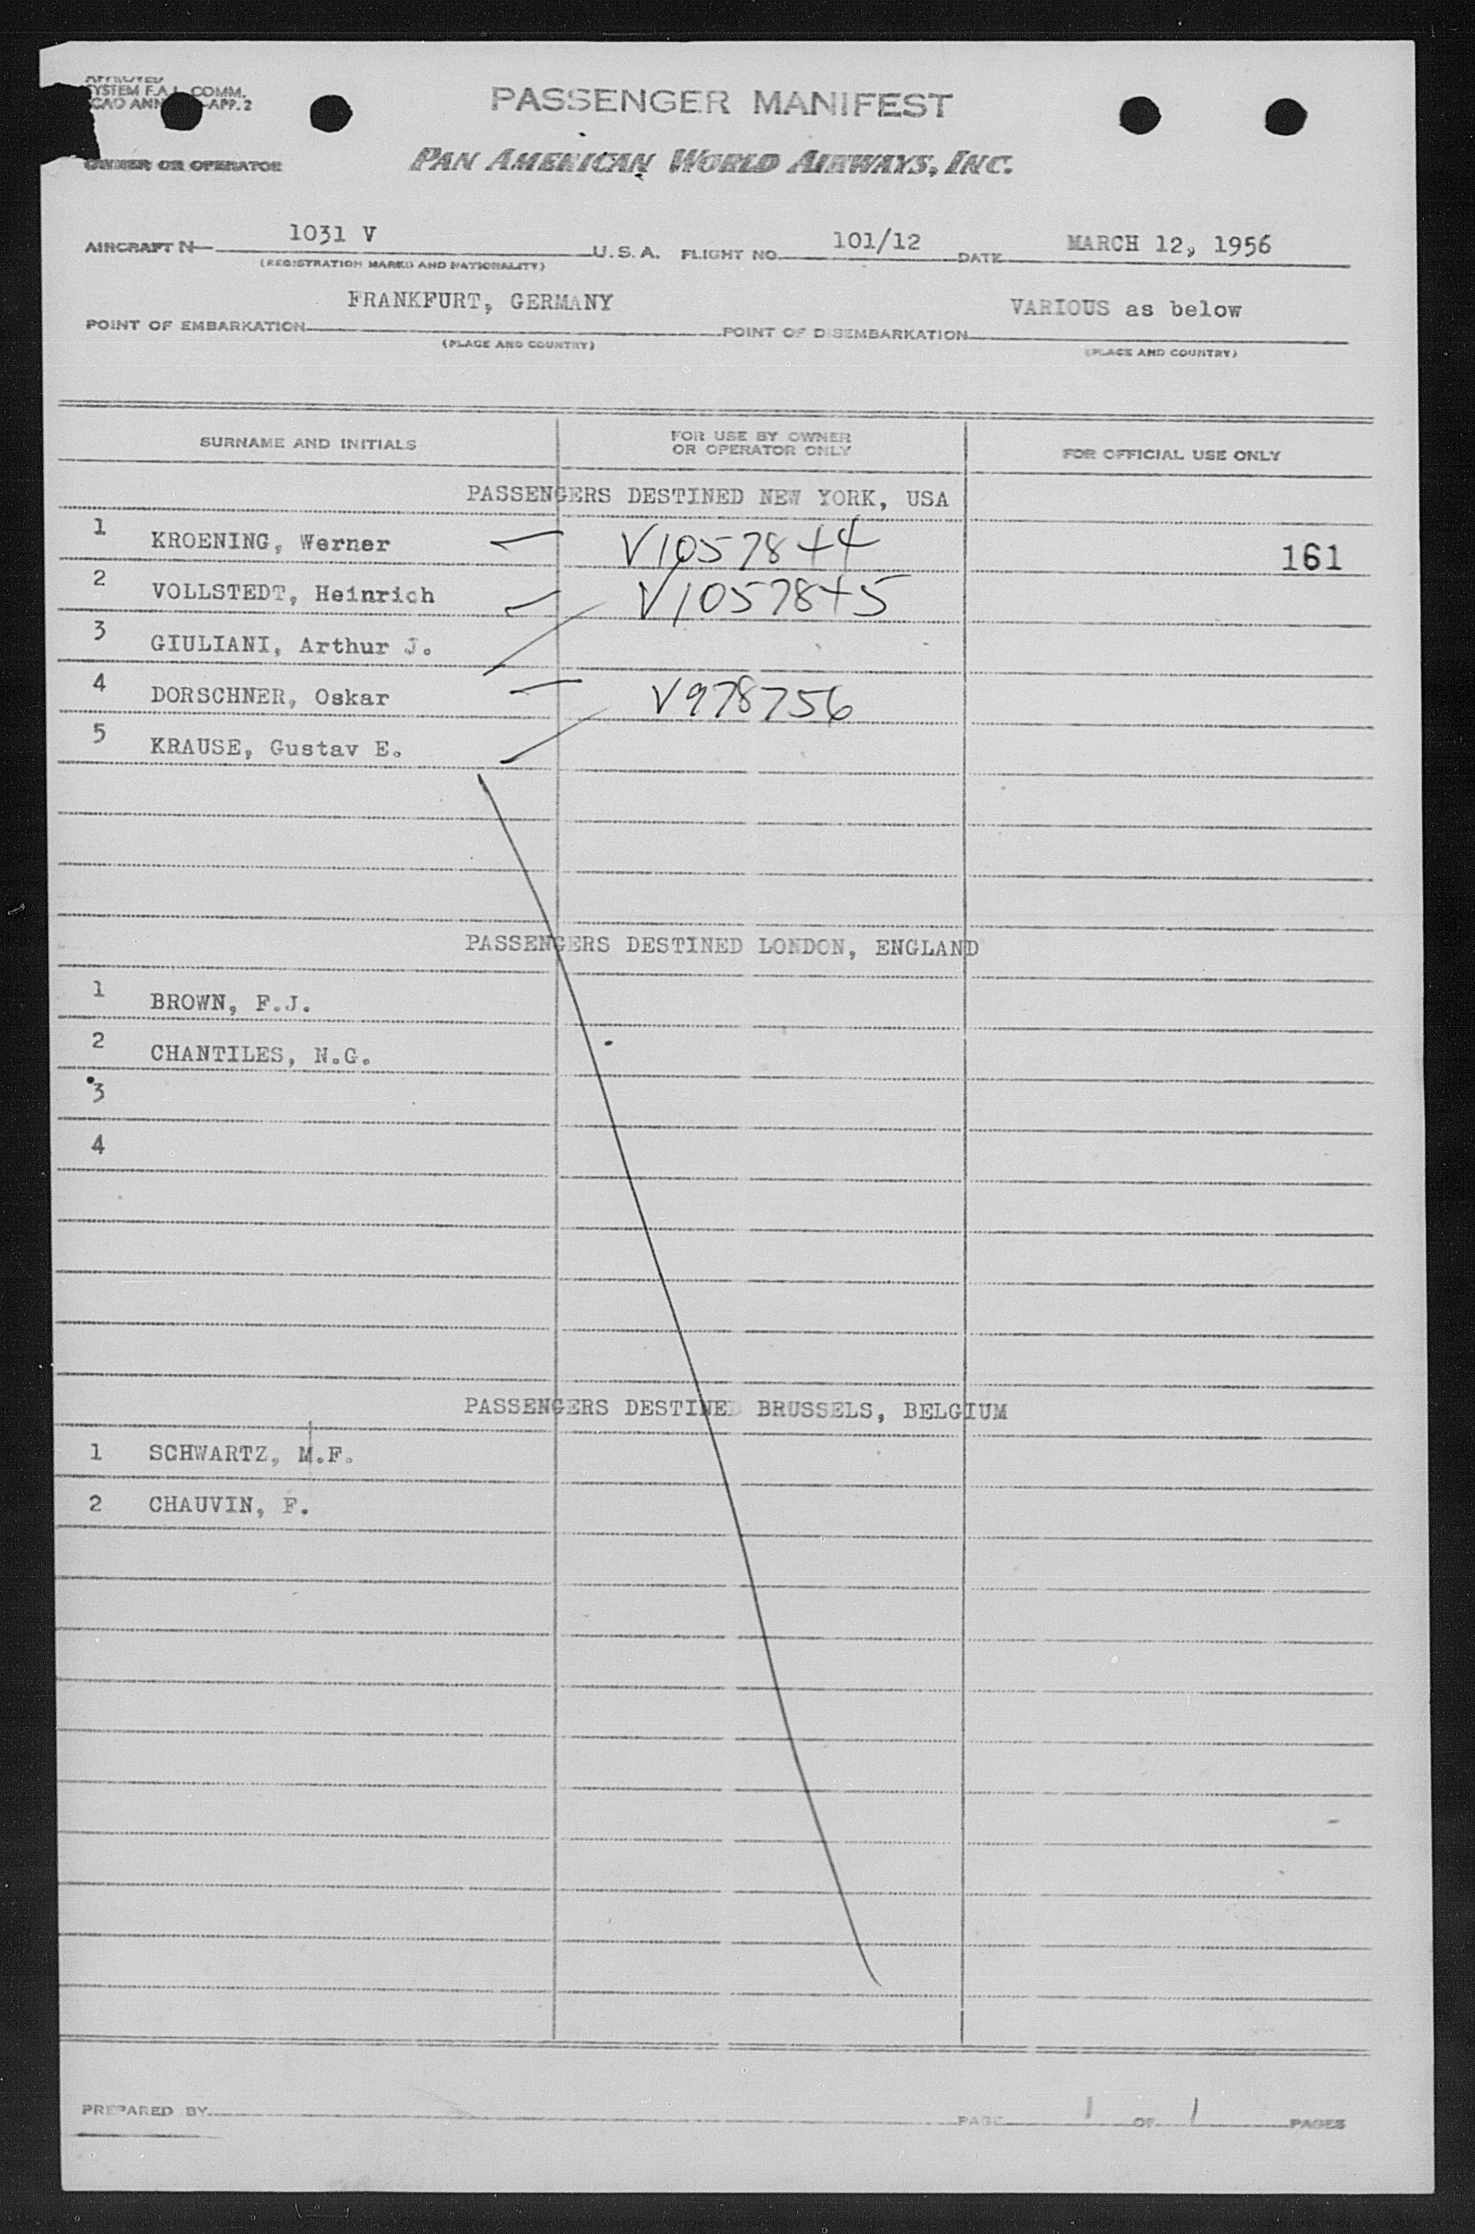 APPROVED
SYSTEM F.A.L. COMM.
ICAO ANN -APP. 2
PASSENGER MANIFEST
OWNER OR OPERATOR PAN AMERICAN WORLD AIRWAYS, INC.
AIRCRAFT N 1031 V U.S.A. FLIGHT NO. 101/12 DATE MARCH 12, 1956
(REGISTRATION MARKS AND NATIONALITY)
POINT OF EMBARKATION FRANKFURT, GERMANY POINT OF DISEMBARKATION VARIOUS as below
(PLACE AND COUNTRY) (PLACE AND COUNTRY)
SURNAME AND INITIALS FOR USE BY OWNER OR OPERATOR ONLY FOR OFFICIAL USE ONLY
PASSENGERS DESTINED NEW YORK, USA
1 KROENING, Werner V1057844 161
2 VOLLSTEDT, Heinrich V1057845
3 GIULIANI, Arthur J.
4 DORSCHNER, Oskar V978756
5 KRAUSE, Gustav E.
PASSENGERS DESTINED LONDON, ENGLAND
1 BROWN, F.J.
2 CHANTILES, N.G.
3
4
PASSENGERS DESTINED BRUSSELS, BELGIUM
1 SCHWARTZ, M.F.
2 CHAUVIN, F.
PREPARED BY PAGE 1 OF 1 PAGES